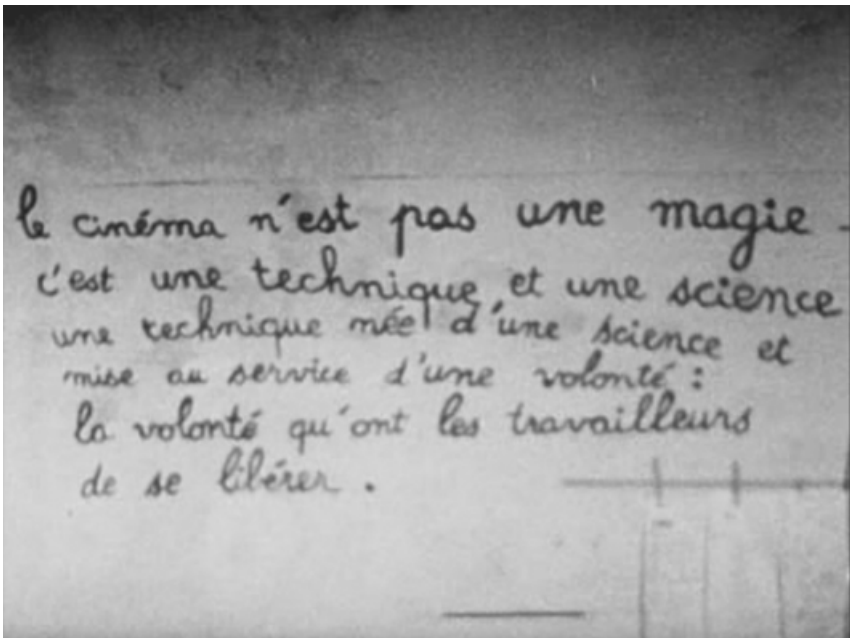 le cinéma n'est pas une magie -
c'est une technique et une science
une technique née d'une science et
mise au service d'une volonté :
la volonté qu'ont les travailleurs
de se libérer .